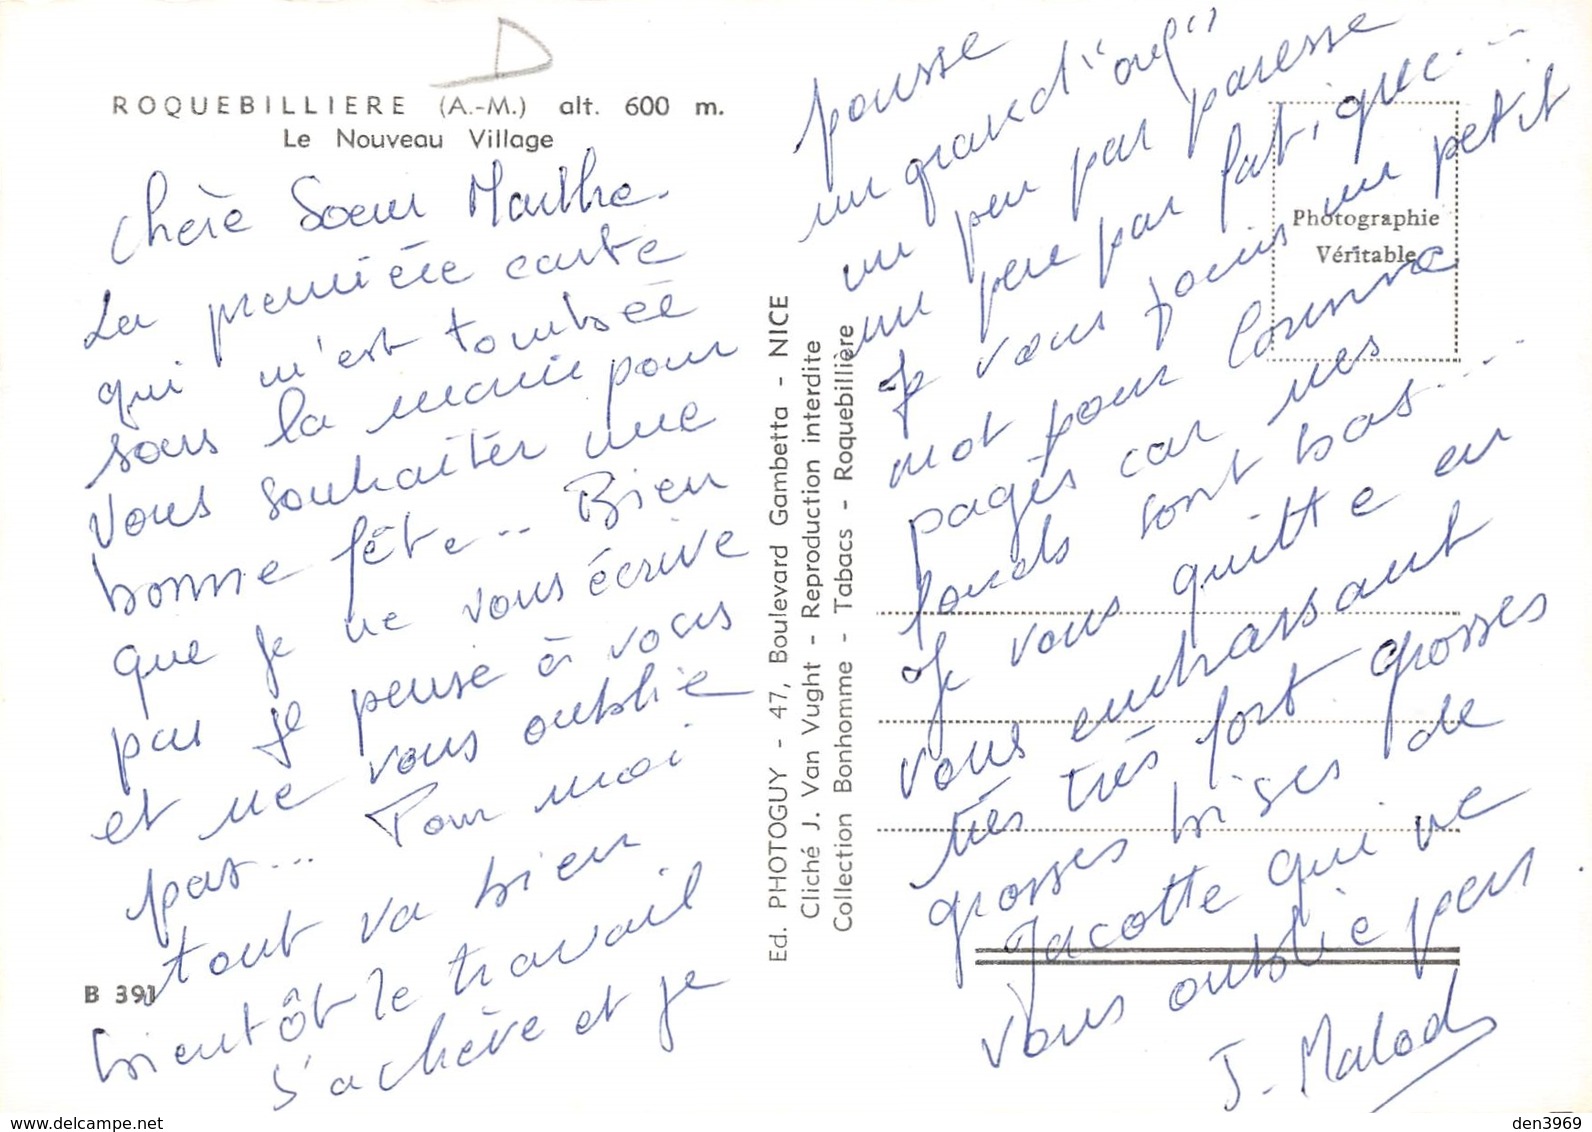 ROQUEBILLIERE (A.-M.) alt. 600 m.
Le Nouveau Village
Chère Soeur Marthe.
La première carte
qui m'est tombée
sous la main pour
vous souhaiter une
bonne fête... Bien
que je ne vous écrive
pas je pense à vous
et ne vous oublie
pas... Pour moi
tout va bien
bientôt le travail
s'achève et je
B 391
Ed. PHOTOGUY - 47, Boulevard Gambetta - NICE
Cliché J. Van Vught - Reproduction interdite
Collection Bonhomme - Tabacs - Roquebillière
Photographie
Véritable
pousse
un grand "ouf"
un peu par paresse
un peu par fatigue...
Je vous joins un petit
mot pour
pages car mes
fonds sont bas...
Je vous quitte en
vous embrassant
très très fort grosses
grosses bises de
Jacotte qui ne
vous oublie pas
J. Malod
den3969